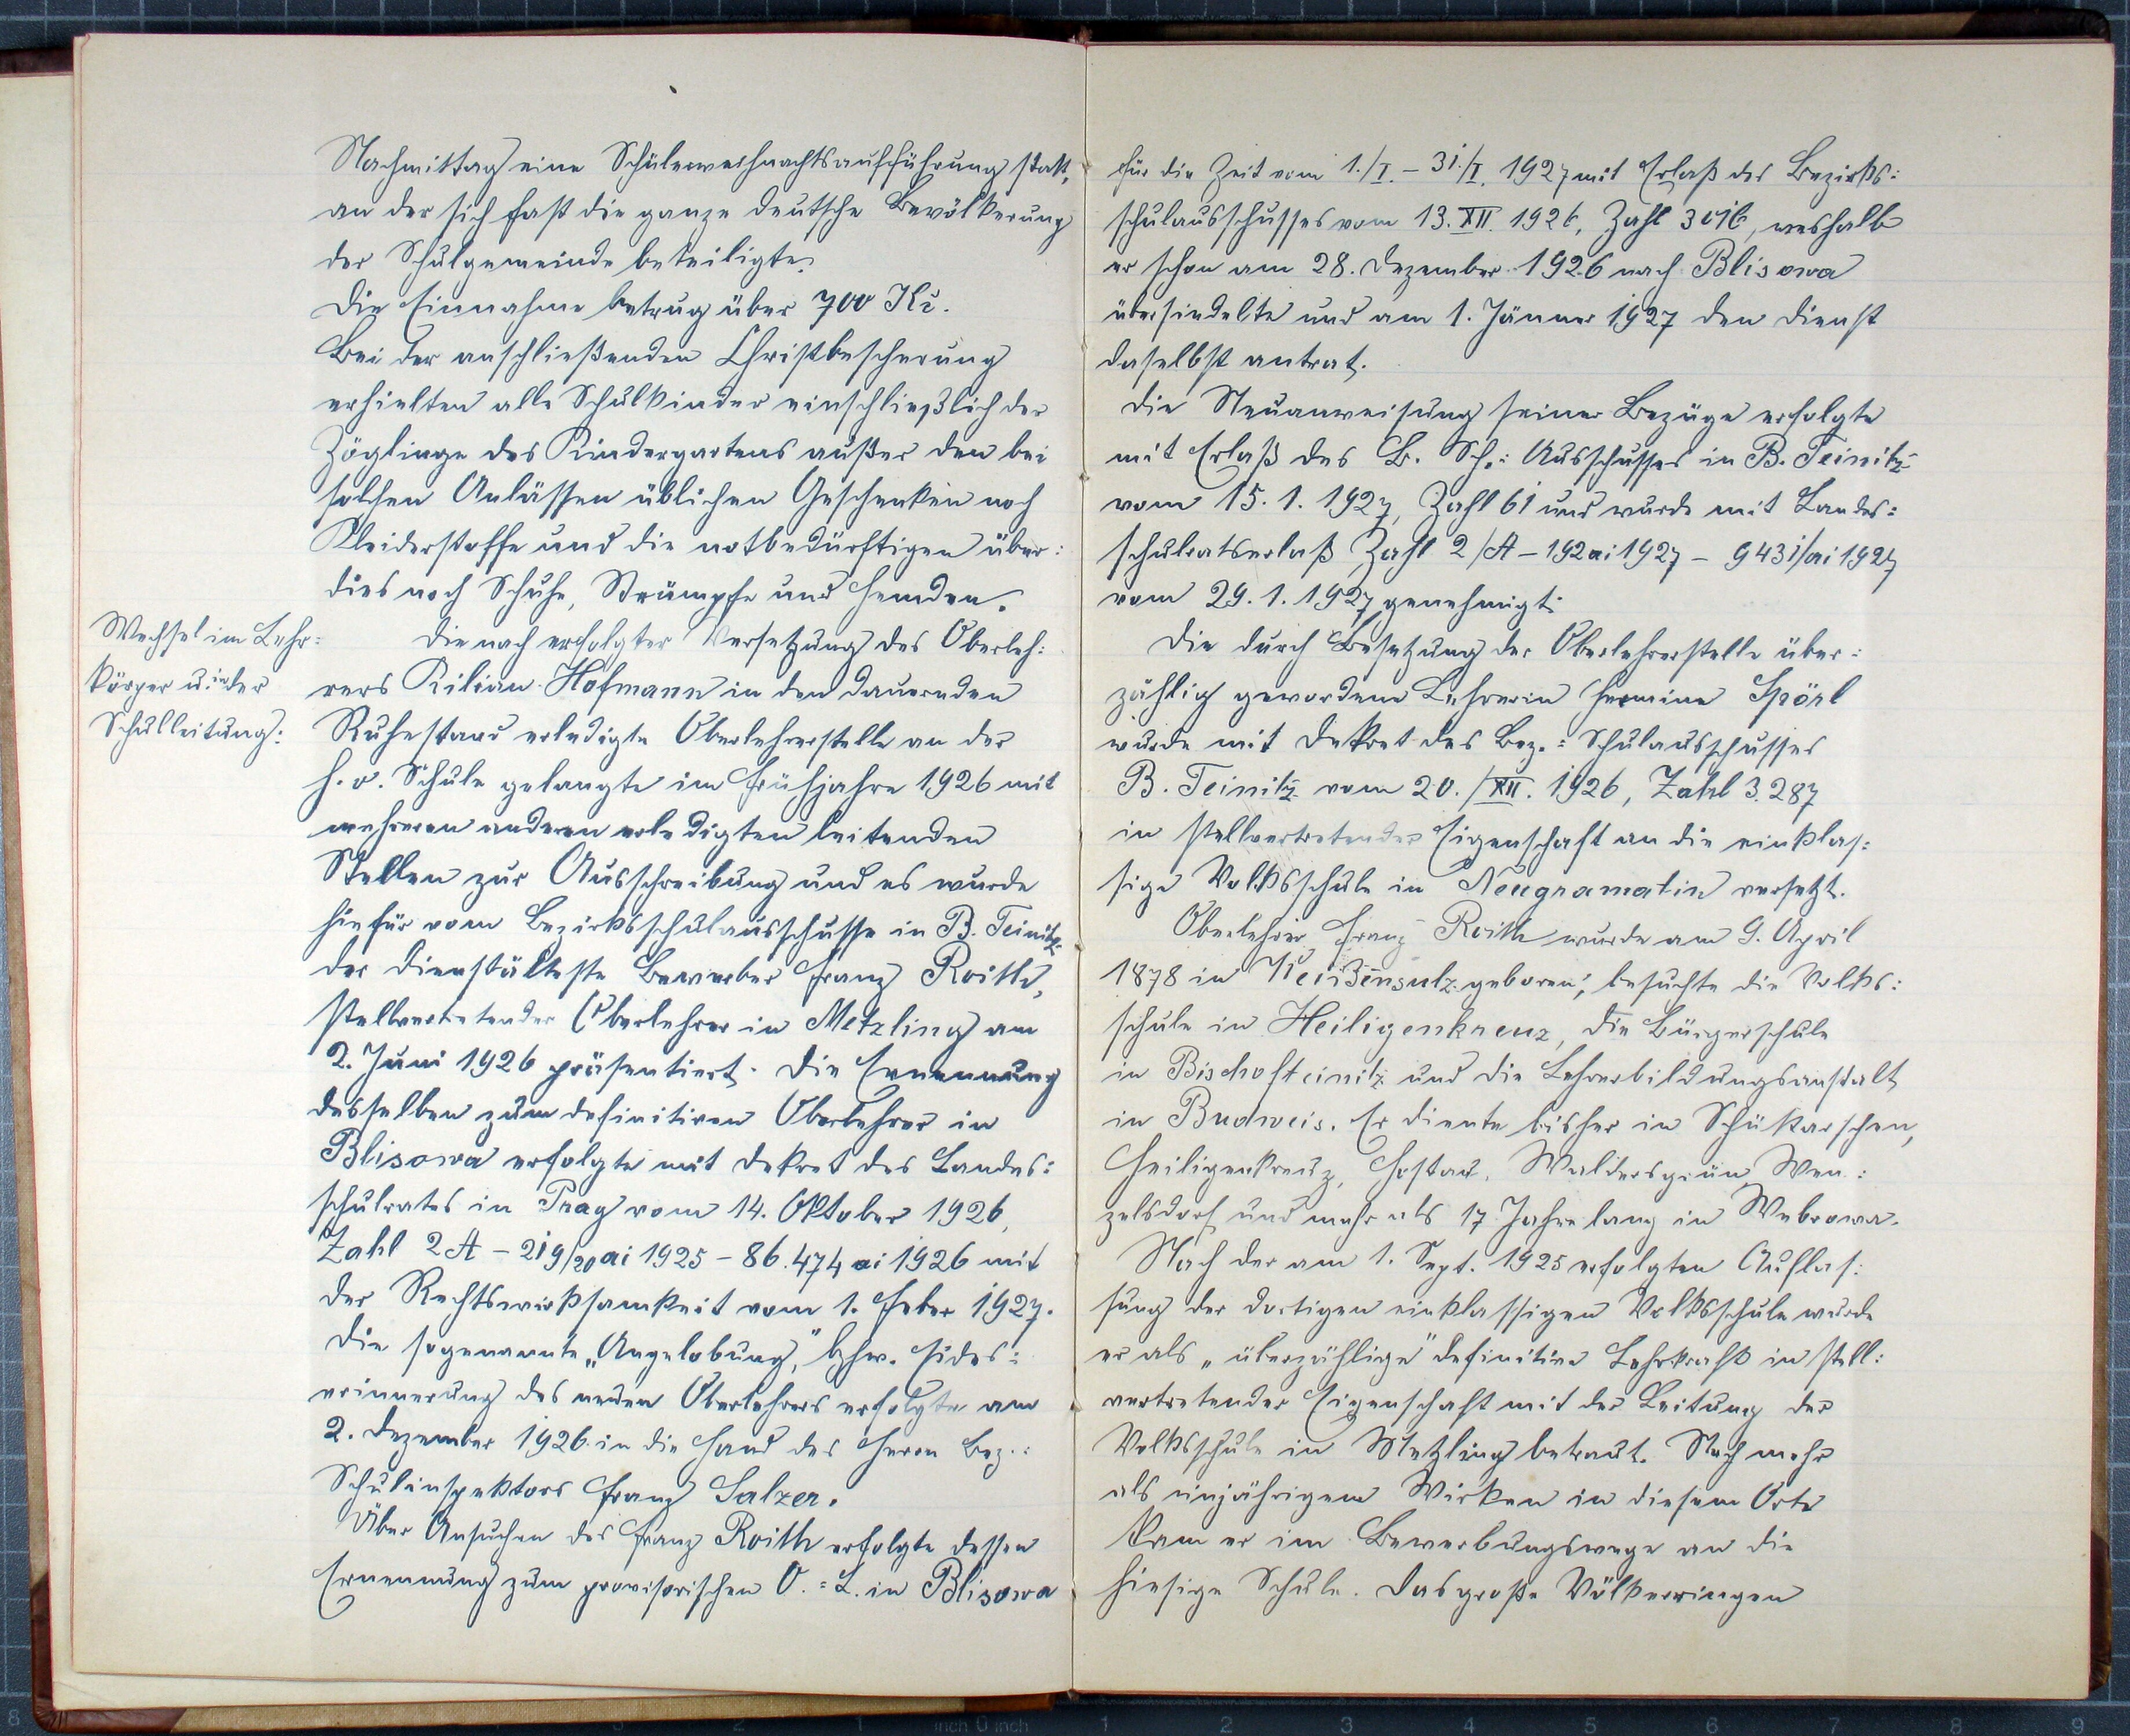 Nachmittag eine Schülerweihnachtsaufführung statt,
an der sich fast die ganze deutsche Bevölkerung
der Schulgemeinde beteiligte.
Die Einnahme betrug über 700 Kč.
Bei der anschließenden Christbescherung
erhielten alle Schulkinder einschließlich der
Zöglinge des Kindergartens außer den bei
solchen Anlässen üblichen Geschenken noch
Kleiderstoffe und die notbedürftigen über:
dies noch Schuhe, Strümpfe und Hemden.
Wechsel im Lehr:
körper u. in der
Schulleitung:
Die nach erfolgter Versetzung des Oberleh:
rers Kilian Hofmann in den dauernden
Ruhestand erledigte Oberlehrerstelle an der
h. o. Schule gelangte im Frühjahre 1926 mit
mehreren anderen erledigten leitenden
Stellen zur Ausschreibung und es wurde
hiefür vom Bezirksschulausschusse in B. Teinitz
der dienstälteste Bewerber Franz Roith,
stellvertretender Oberlehrer in Metzling am
2. Juni 1926 präsentiert. Die Ernennung
desselben zum definitiven Oberlehrer in
Blisowa erfolgte mit Dekret des Landes:
schulrates in Prag vom 14. Oktober 1926,
Zahl 2 A – 219/20 ai 1925 – 86.474 ai 1926 mit
der Rechtswirksamkeit vom 1. Feber 1927.
Die sogenannte „Angelobung," bzhw. Eides:
erinnerung des neuen Oberlehrers erfolgte am
2. Dezember 1926 in die Hand des Herrn Bez.:
Schulinspektors Franz Salzer.
Über Ansuchen des Franz Roith erfolgte dessen
Ernennung zum provisorischen O.=L. in Blisowa
für die Zeit vom 1./I. – 31./I. 1927 mit Erlaß des Bezirks:
schulausschusses vom 13. XII. 1926, Zahl, weshalb
er schon am 28. Dezember 1926 nach Blisowa
übersiedelte und am 1. Jänner 1927 den Dienst
daselbst antrat.
Die Neuanweisung seiner Bezüge erfolgte
mit Erlaß des B. Sch.: Ausschusses in B. Teinitz
vom 15. 1. 1927, Zahl 61 und wurde mit Landes:
schulratserlaß Zahl 2/A – 192 ai 1927 – 9431/ai 1927
vom 29. 1. 1927 genehmigt.
Die durch Besetzung der Oberlehrerstelle über:
zählig gewordene Lehrerin Hermine Spörl
wurde mit Dekret des Bez.= Schulausschusses
B. Teinitz vom 20./XII. 1926, Zahl 3.287
in stellvertretender Eigenschaft an die einklas:
sige Volksschule in Neugramatin versetzt.
Oberlehrer Franz Roith wurde am 9. April
1878 in Weißensulz geboren, besuchte die Volks:
schule in Heiligenkreuz, die Bürgerschule
in Bischofteinitz und die Lehrerbildungsanstalt
in Budweis. Er diente bisher in Schükarschen,
Heiligenkreuz, Hostau, Waldersgrün, Wen:
zelsdorf und mehr als 17 Jahre lang in Webrowa.
Nach der am 1. Sept. 1925 erfolgten Auflas:
sung der dortigen einklassigen Volksschule wurde
er als „überzählige" definitive Lehrkraft in stell:
vertretender Eigenschaft mit der Leitung der
Volksschule in Metzling betraut. Nach mehr
als einjährigem Wirken in diesem Orte
kam er im Bewerbungswege an die
hiesige Schule. Das große Völkerringen